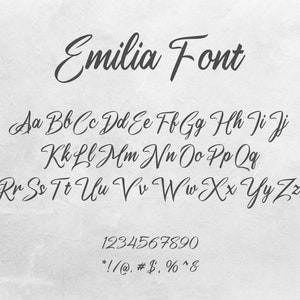 Emilia Font
Aa Bb Cc Dd Ee Ff Gg Hh Ii Jj
Kk Ll Mm Nn Oo Pp Qq
Rr Ss Tt Uu Vv Ww Xx Yy Zz
1234567890
*!/@.#$,%^&